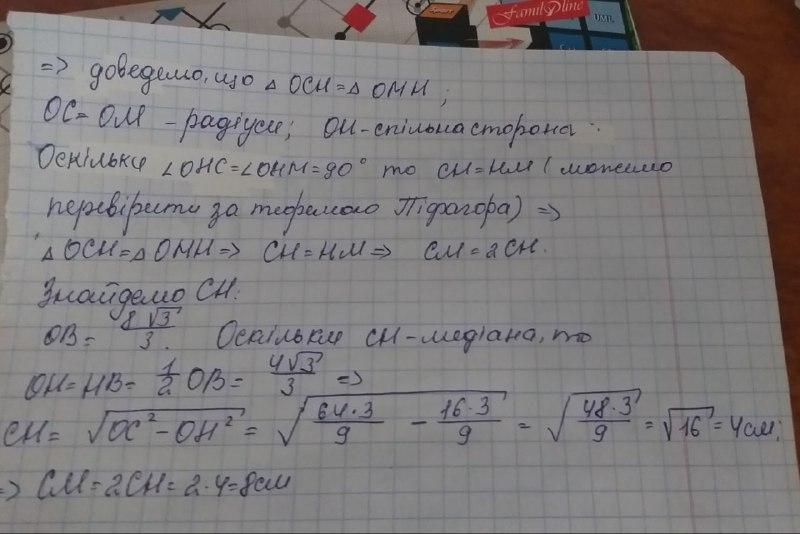 FamilDline
UML
=> доведемо, що △ OCH = △ OMH ;
OC = OM - радіуси; OH - спільна сторона
Оскільки ∠OHC = ∠OHM = 90° то CH = HM ( можемо
перевірити за теоремою Піфагора) =>
△ OCH = △ OMH => CH = HM => CM = 2CH.
Знайдемо CH:
OB = 8√3/3 . Оскільки CH - медіана, то
OH = HB = 1/2 OB = 4√3/3 =>
CH = √(OC² - OH²) = √(64·3/9 - 16·3/9) = √(48·3/9) = √16 = 4см;
=> CM = 2CH = 2·4 = 8см